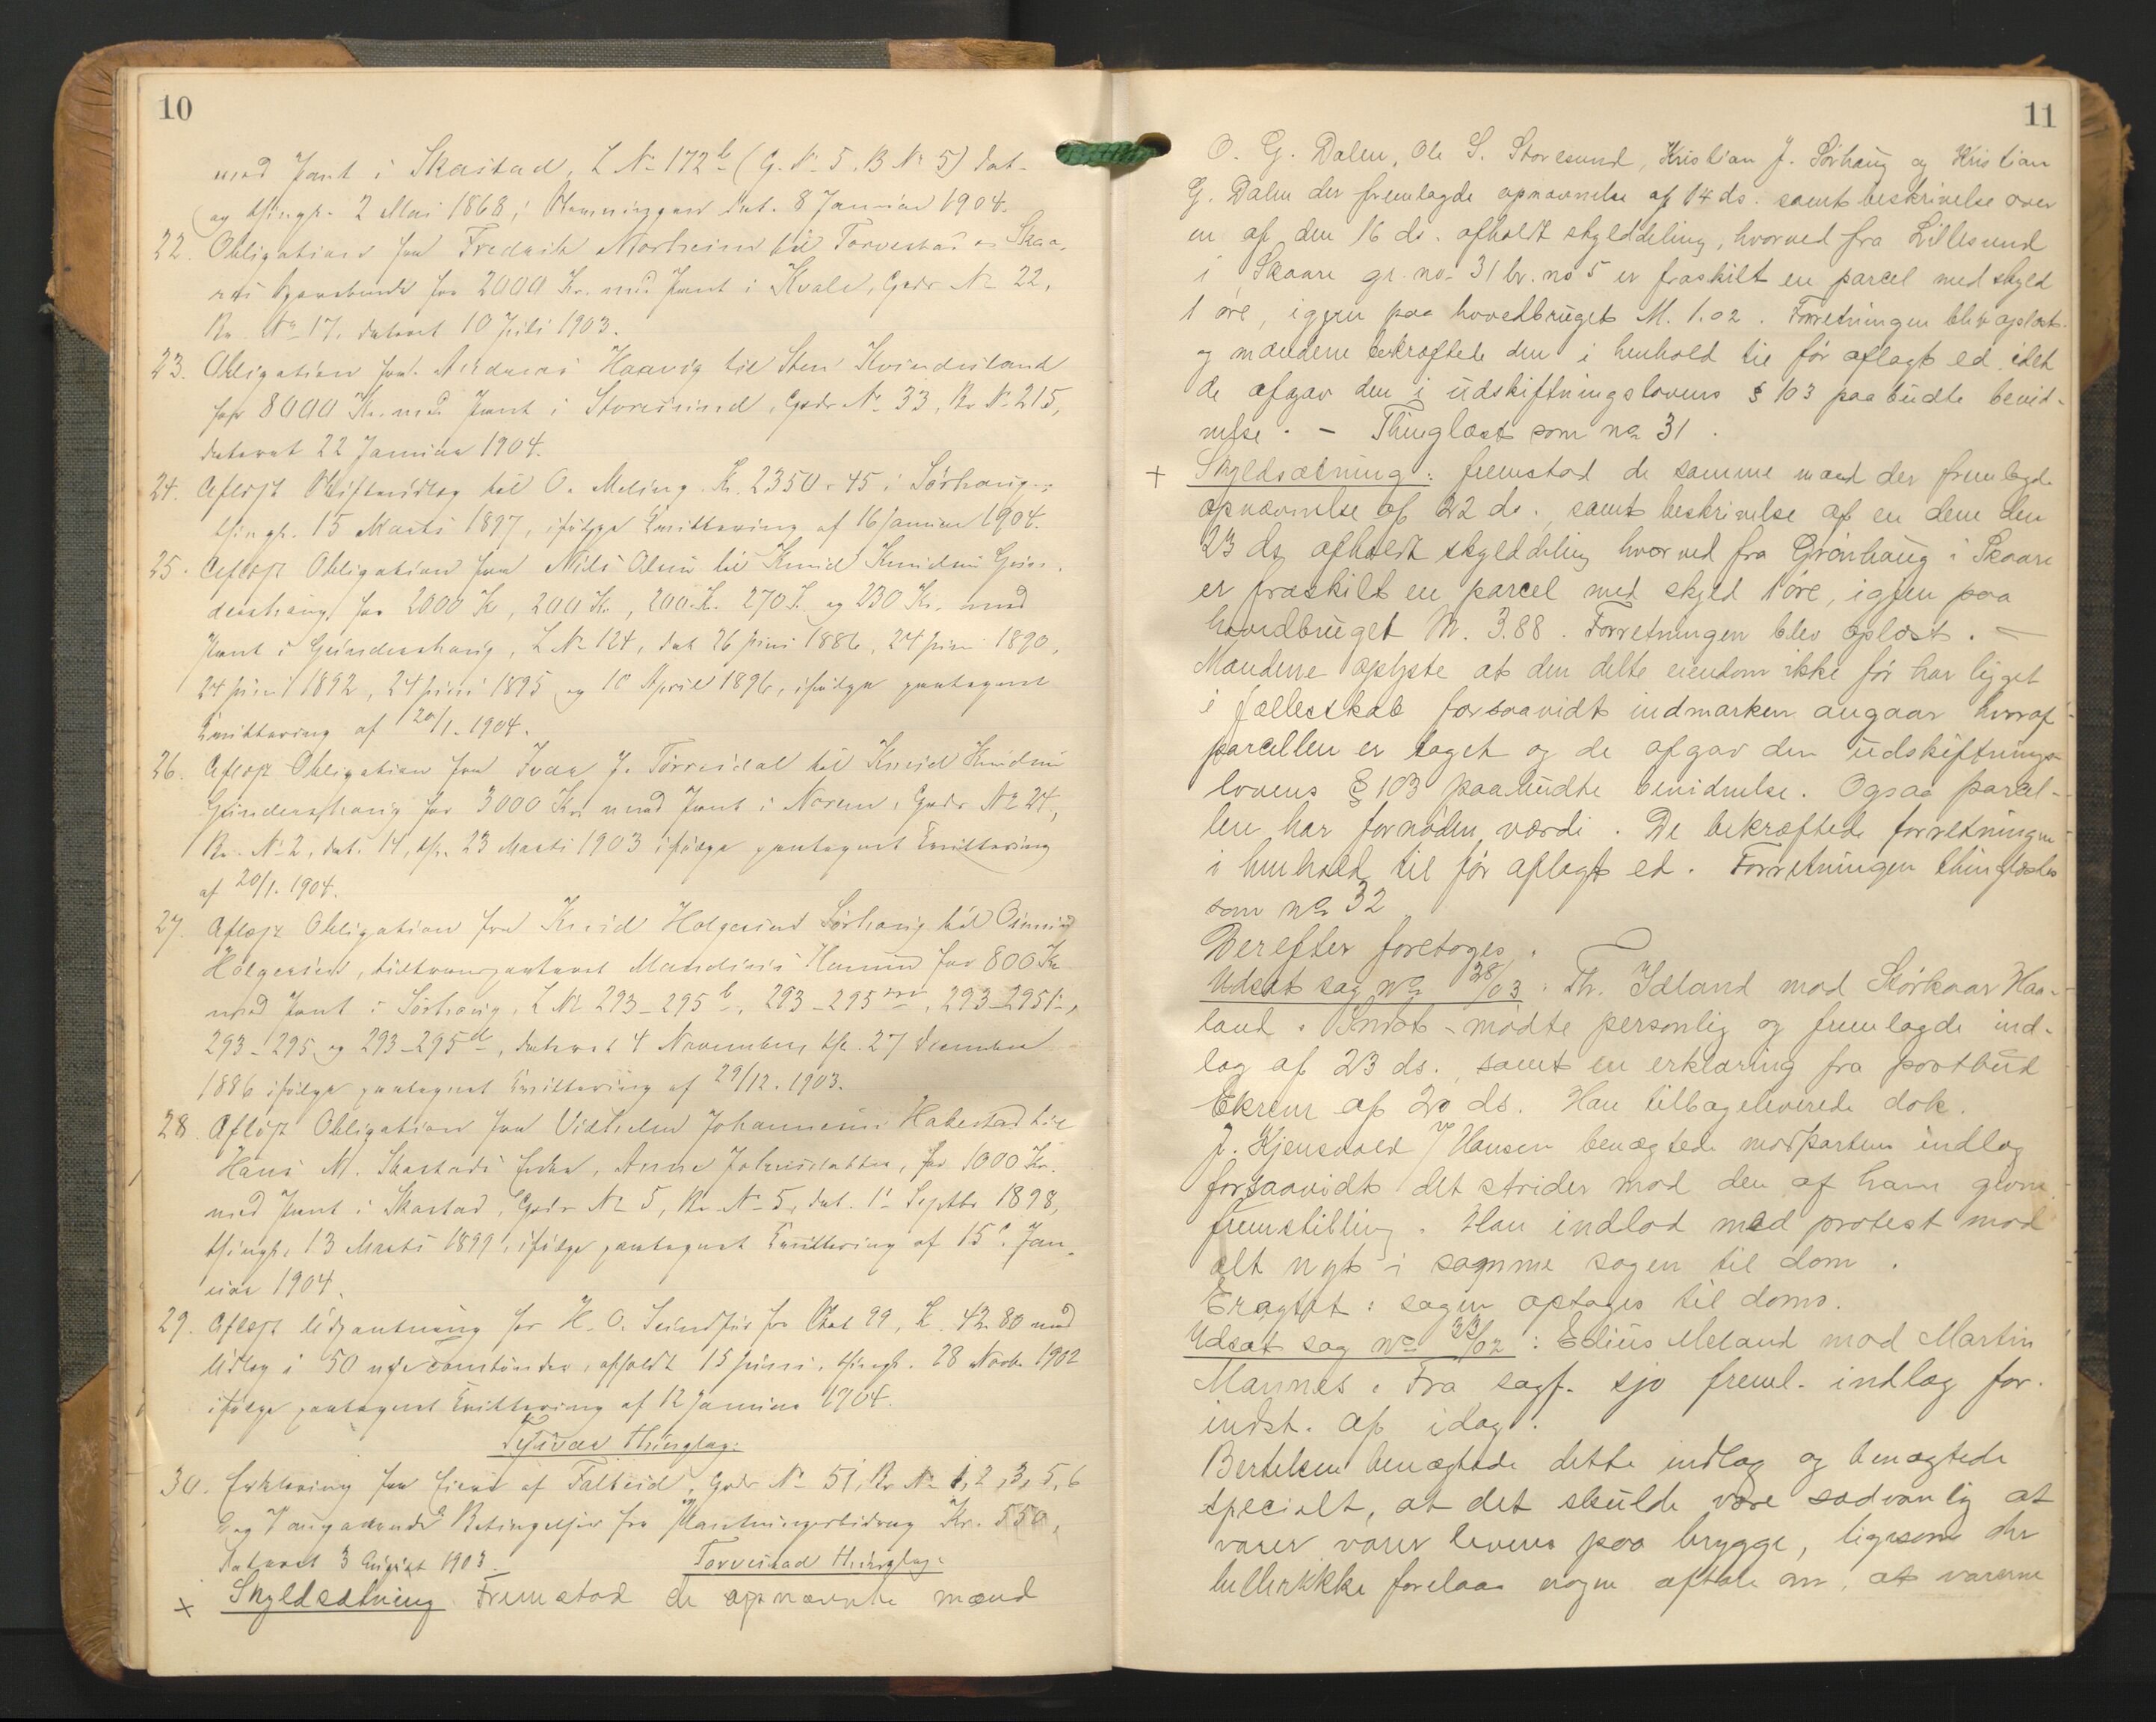 10
med Pant i Skastad, L No 172 b (G. No 5, B No 5) dat.
og thingl. 2 Mai 1868, dat. 8 Januar 1904.
22. Obligation fra Fredrik Norheim til Torvestad og Skaa-
res for 2000 Kr. med Pant i Kvale, Grdr No 22,
Br. No 17, dateret 10 Juli 1903.
23. Obligation fra Andreas Haavig til Sten Kvinesland
for 8000 Kr. med Pant i Storesund, Grdr No 33, Br No 215,
dateret 22 Januar 1904.
24. Aflyst Skifteudlæg til O. Meling Kr. 2350.45 i Sørhaug,
thingl. 15 Marts 1897, ifølge Kvittering af 16 Januar 1904.
25. Aflyst Obligation fra Nils Olsen til Knud Knudsen Gun-
dershaug for 2000 Kr, 200 Kr., 200 Kr. 270 K. og 230 Kr. med
Pant i Gundershaug, L No 124, dat 26 Juni 1886, 24 Juni 1890,
24 Juni 1892, 24 Juni 1895 og 10 April 1896, ifølge paategnet
Kvittering af 20/1. 1904.
26. Aflyst Obligation fra Ivar J. Torresdal til Knud Knudsen
Gundershaug for 3000 Kr. med Pant i Norem, Grdr No 24,
Br. No 2, dat. 14, thl. 23 Marts 1903 ifølge paategnet Kvittering
af 20/1. 1904.
27. Aflyst Obligation fra Knud Holgersen Sørhaug til
Holgersen, tiltransporteret for 800 Kr
med Pant i Sørhaug, L No 293-295 b, 293-295, 293-295,
293-295 og 293-295 d, dateret 4 November, thl. 27 December
1886 ifølge paategnet Kvittering af 29/12. 1903.
28. Aflyst Obligation fra Vilhelm Johannesen Hakestad til
Hans M. Skastads Enke, Anna Johnsdatter, for 1000 Kr.
med Pant i Skastad, Grdr No 5, Br. No 5, dat. 1 Septbr 1898,
thingl. 13 Marts 1899, ifølge paategnet Kvittering af 15 Jan-
uar 1904.
29. Aflyst Udpantning for H. O. Sundfør for Skat 99, K. 42.80 med
Udlæg i 50 nye tomtønder, afholdt 15 Juni, thingl. 28 Novbr 1902
ifølge paategnet Kvittering af 12 Januar 1904.
Tysvær Thinglag:
30. Erklæring fra Eierne af Falkeid, Grdr No 51, Br No 1, 2, 3, 5, 6
og 7 angaaende Betingelser for Kr. 550,
dateret 3 August 1903.
Torvestad Thinglag:
+ Skyldsætning Fremstod de opnævnte mænd
11
O. G. Dalen, Ole S. Storesund, Kristian J. Sørhaug og Kristian
G. Dalen der fremlagde opnævnelse af 14 ds. samt beskrivelse over
en af den 16 ds. afholdt skylddeling, hvorved fra Lillesund
i Skaare gr. no. 31 br. no 5 er fraskilt en parcel med skyld
1 øre, igjen paa hovedbruget M. 1.02. Forretningen blev oplæst
og mændene bekræftede den i henhold til før aflagt ed idet
de afgav den i udskiftningslovens § 103 paabudte bevid-
nelse. – Thinglæst som no 31.
+ Skyldsætning: fremstod de samme mænd der fremlagde
opnævnelse af 22 ds., samt beskrivelse af en dem den
23 ds afholdt skylddeling hvorved fra Grønhaug i Skaare
er fraskilt en parcel med skyld 1 øre, igjen paa
hovedbruget M. 3.88. Forretningen blev oplæst. –
Mændene oplyste at den delte eiendom ikke før har ligget
i fællesskab forsaavidt indmarken angaar hvoraf
parcellen er taget og de afgav den udskiftnings-
lovens § 103 paabudte bevidnelse. Ogsaa parcel-
len har fornøden værdi. De bekræftede forretningen
i henhold til før aflagt ed. Forretningen thinglæstes
som no 32
Derefter foretoges:
Udsat sag no 28/03: Th. Idland mod Størkaar Haa-
land. mødte personlig og fremlagde ind-
læg af 23 ds., samt en erklæring fra postbud
Ekrene af 20 ds. Han tilbageleverede dok.
J. Kjensvold v/ Hansen benægtede modpartens indlæg
forsaavidt det strider mod den af ham givne
fremstilling. Han indlod med protest mod
alt nyt i samme sagen til dom.
Eragtet: sagen optages til doms.
Udsat sag no 33/02: Edius Meland mod Martin
Mannes. Fra sagf. Sjo freml. indlæg for.
indst. af idag.
Bertelsen benægtede dette indlæg og benægtede
specielt, at det skulde være sædvanlig at
varer varer leveres paa brygge, ligesom der
heller ikke forelaa nogen aftale om, at varerne